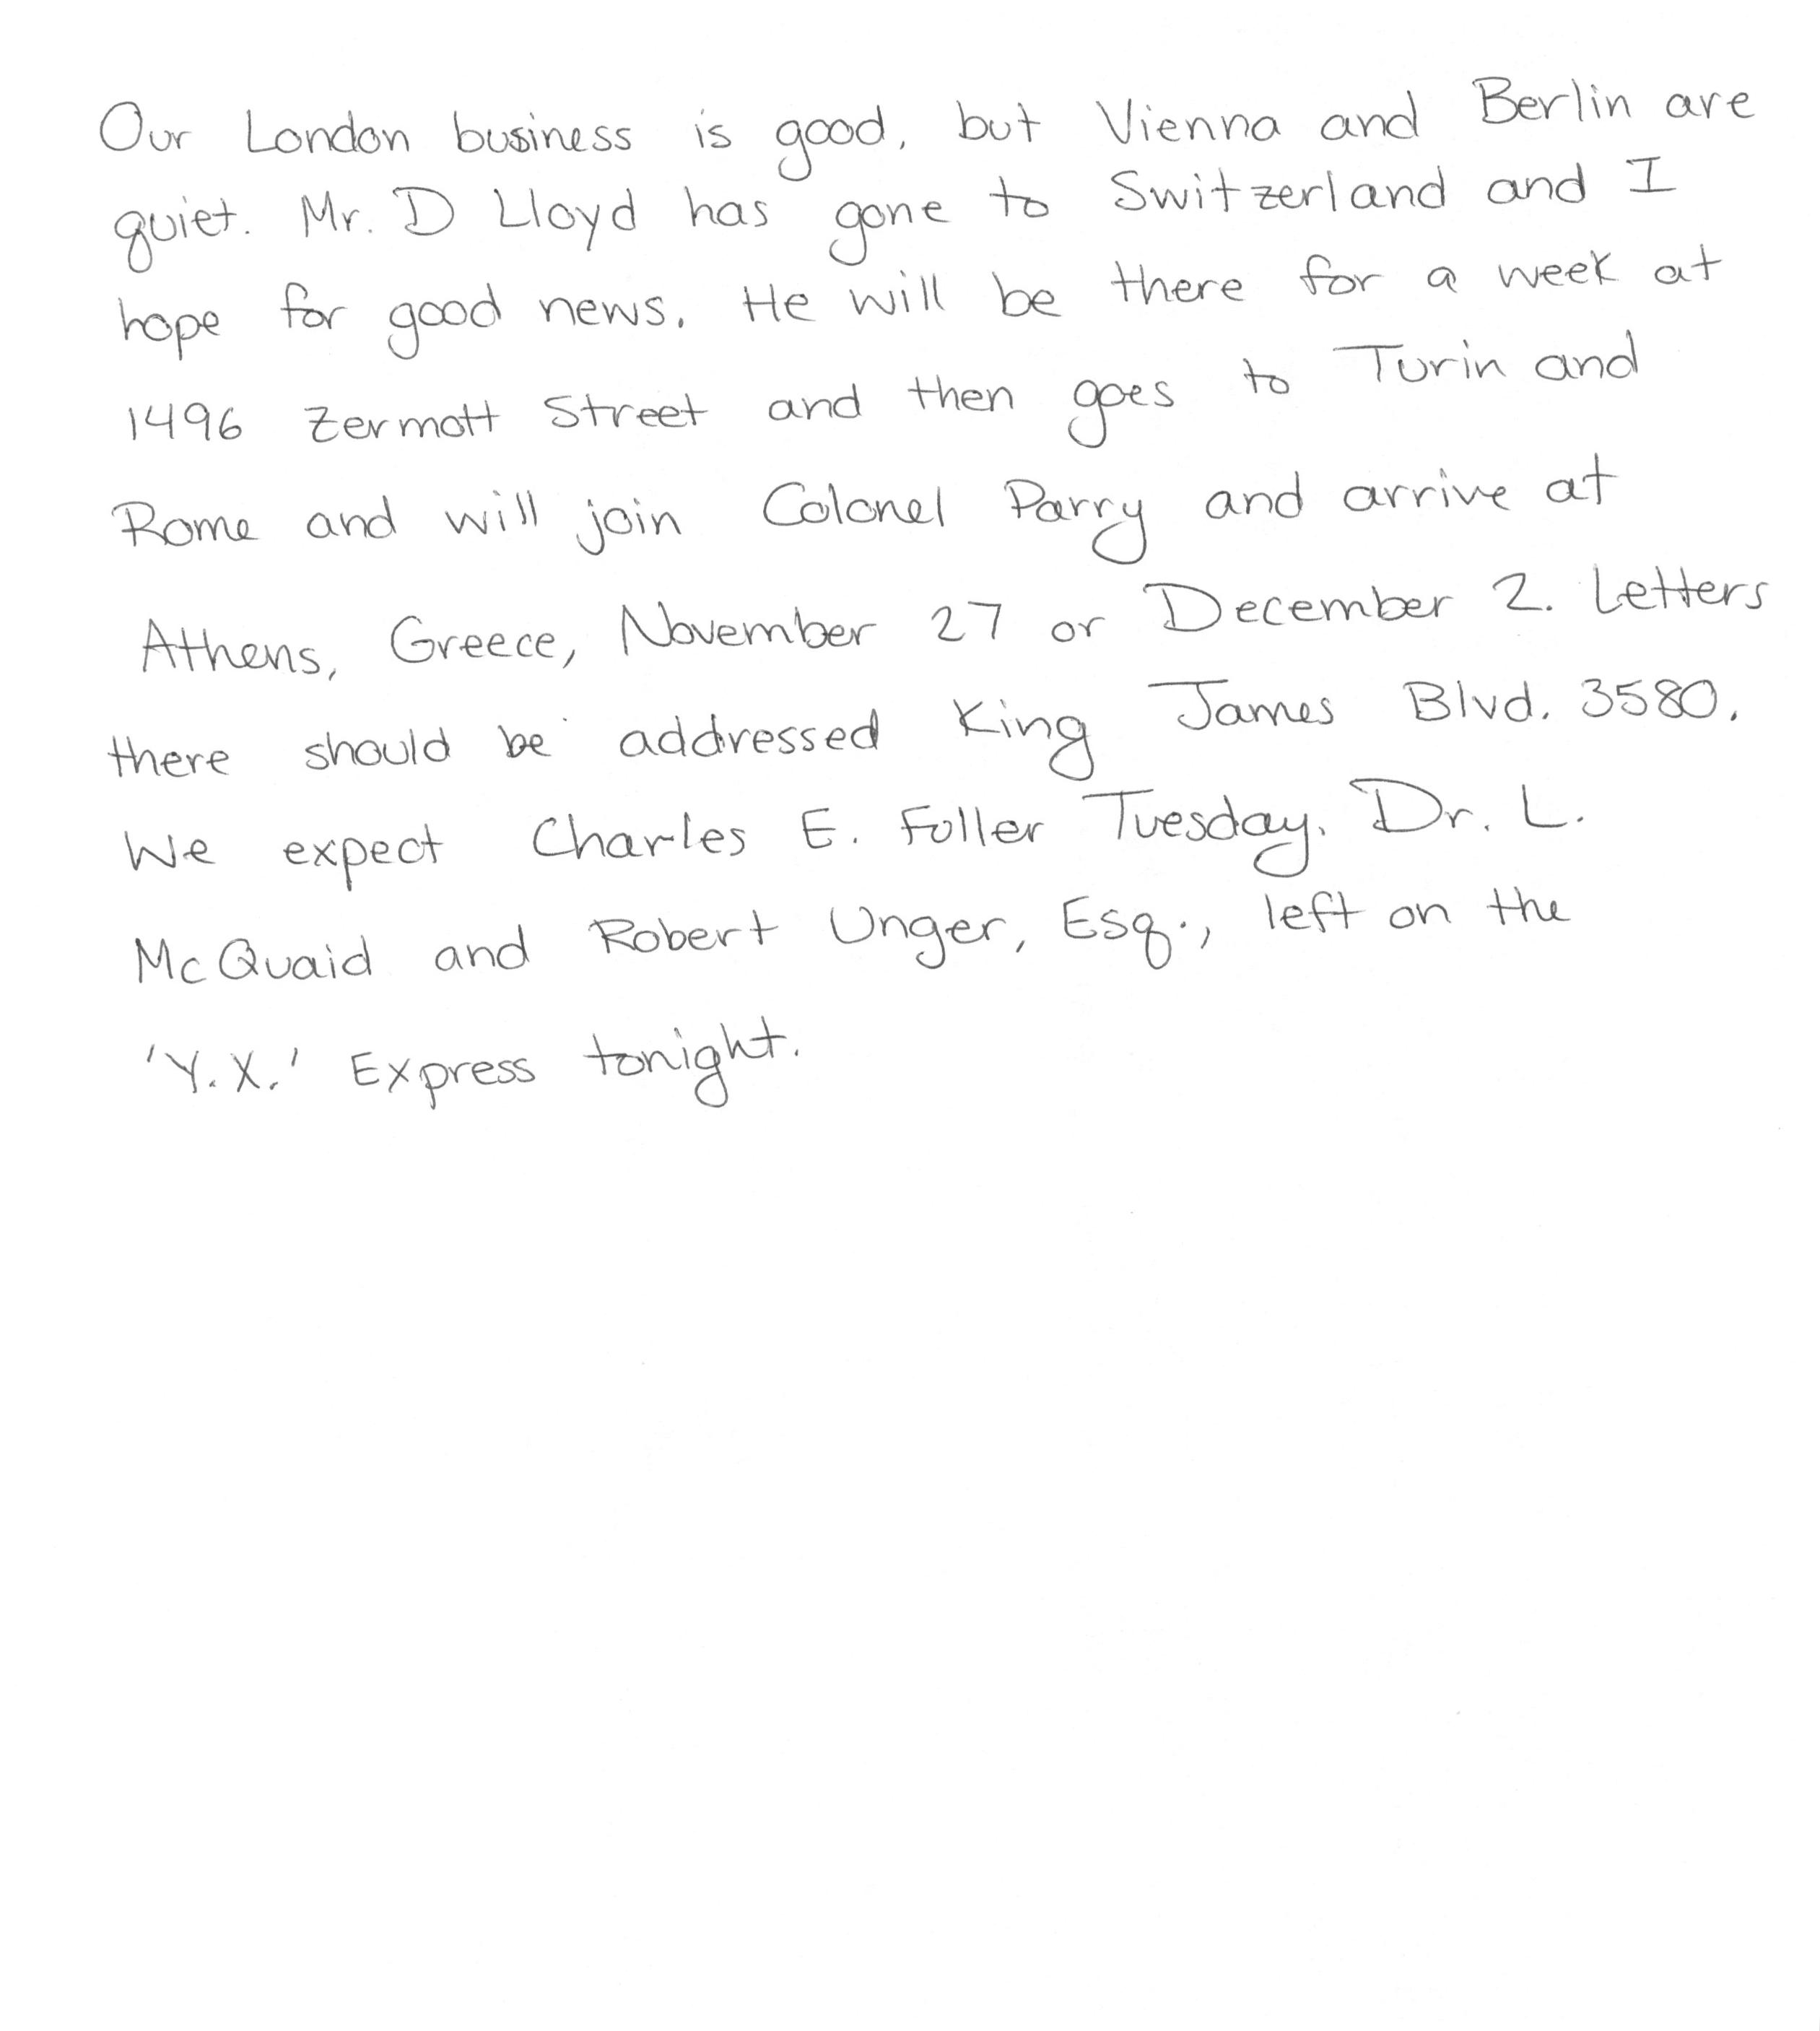 Our London business is good, but Vienna and Berlin are
quiet. Mr. D Lloyd has gone to Switzerland and I
hope for good news. He will be there for a week at
1496 Zermott Street and then goes to Turin and
Rome and will join Colonel Parry and arrive at
Athens, Greece, November 27 or December 2. Letters
there should be addressed King James Blvd. 3580.
We expect Charles E. Fuller Tuesday. Dr. L.
McQuaid and Robert Unger, Esq., left on the
'Y.X.' Express tonight.